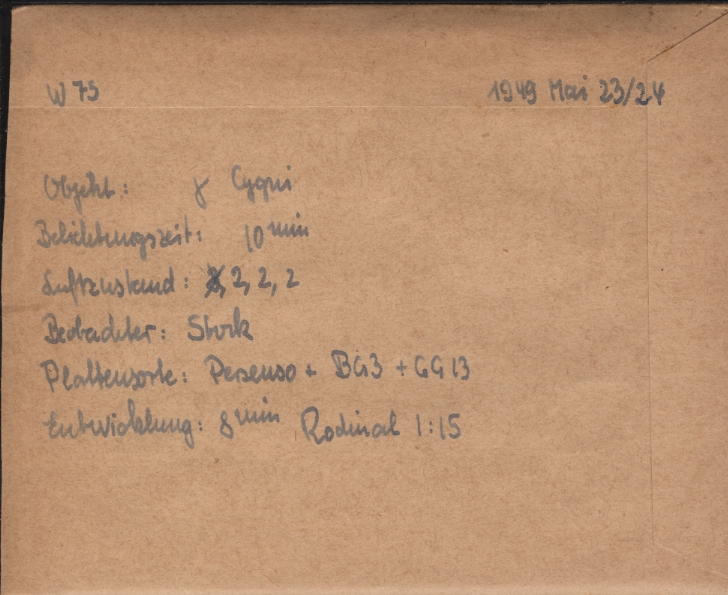 W 75 1949 Mai 23/24
Objekt: γ Cygni
Belichtungszeit: 10 min
Luftzustand: 2, 2, 2
Beobachter: Stock
Plattensorte: Persenso + BG3 + GG13
Entwicklung: 8 min Rodinal 1:15